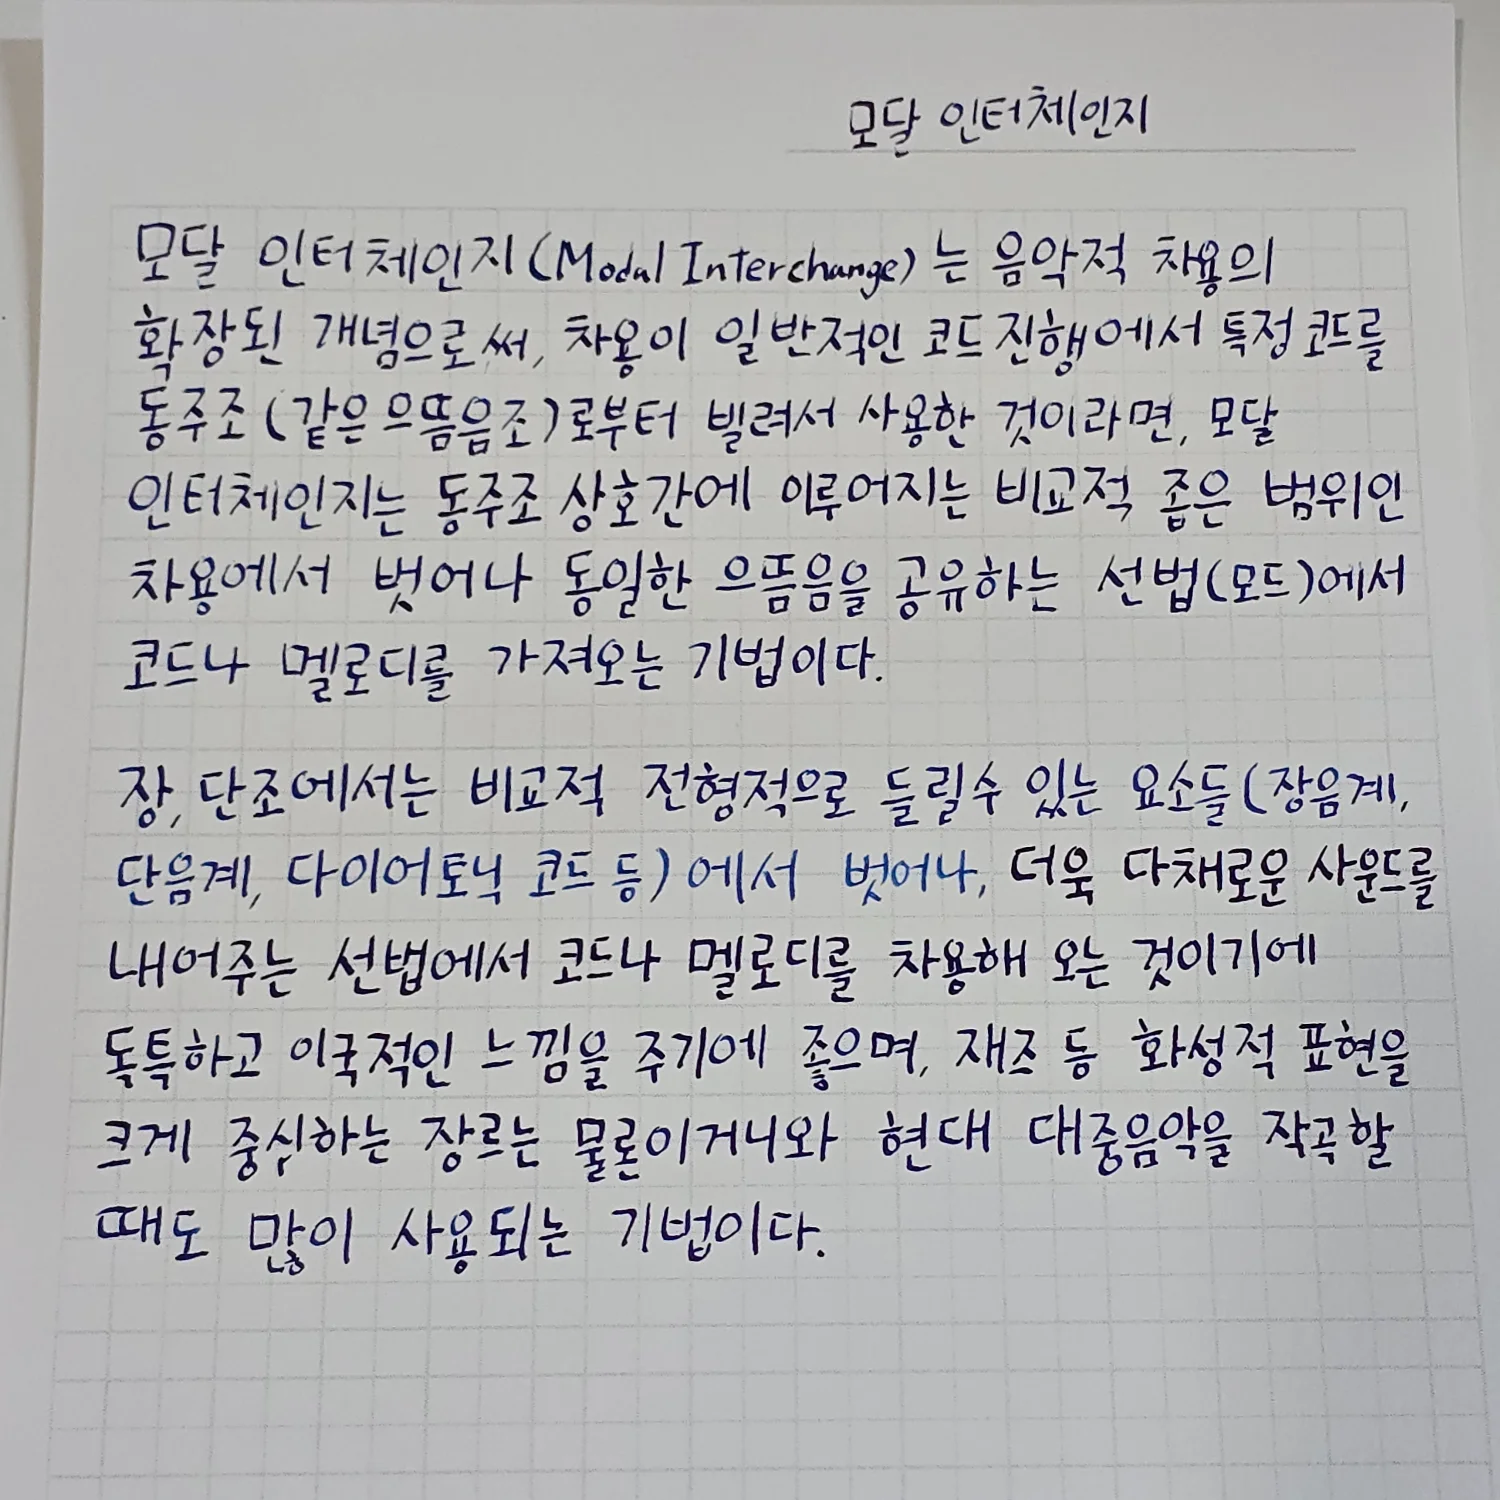 모달 인터체인지
모달 인터체인지(Modal Interchange)는 음악적 차용의
확장된 개념으로써, 차용이 일반적인 코드 진행에서 특정 코드를
동주조(같은으뜸음조)로부터 빌려서 사용한 것이라면, 모달
인터체인지는 동주조 상호간에 이루어지는 비교적 좁은 범위인
차용에서 벗어나 동일한 으뜸음을 공유하는 선법(모드)에서
코드나 멜로디를 가져오는 기법이다.
장, 단조에서는 비교적 전형적으로 들릴수 있는 요소들(장음계,
단음계, 다이어토닉 코드 등)에서 벗어나, 더욱 다채로운 사운드를
내어주는 선법에서 코드나 멜로디를 차용해 오는 것이기에
독특하고 이국적인 느낌을 주기에 좋으며, 재즈 등 화성적 표현을
크게 중심하는 장르는 물론이거니와 현대 대중음악을 작곡할
때도 많이 사용되는 기법이다.